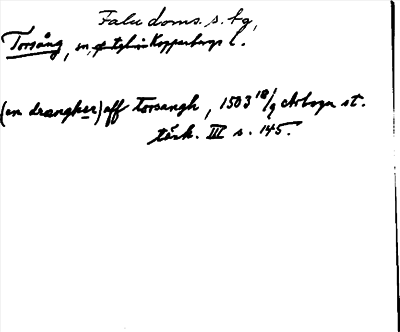 Falu doms. s. tg,
Torsång, sn, Kopparbergs l.
(en drængker) aff Torsangh, 1503 18/9 Arboga st.
tänk. III s. 145.